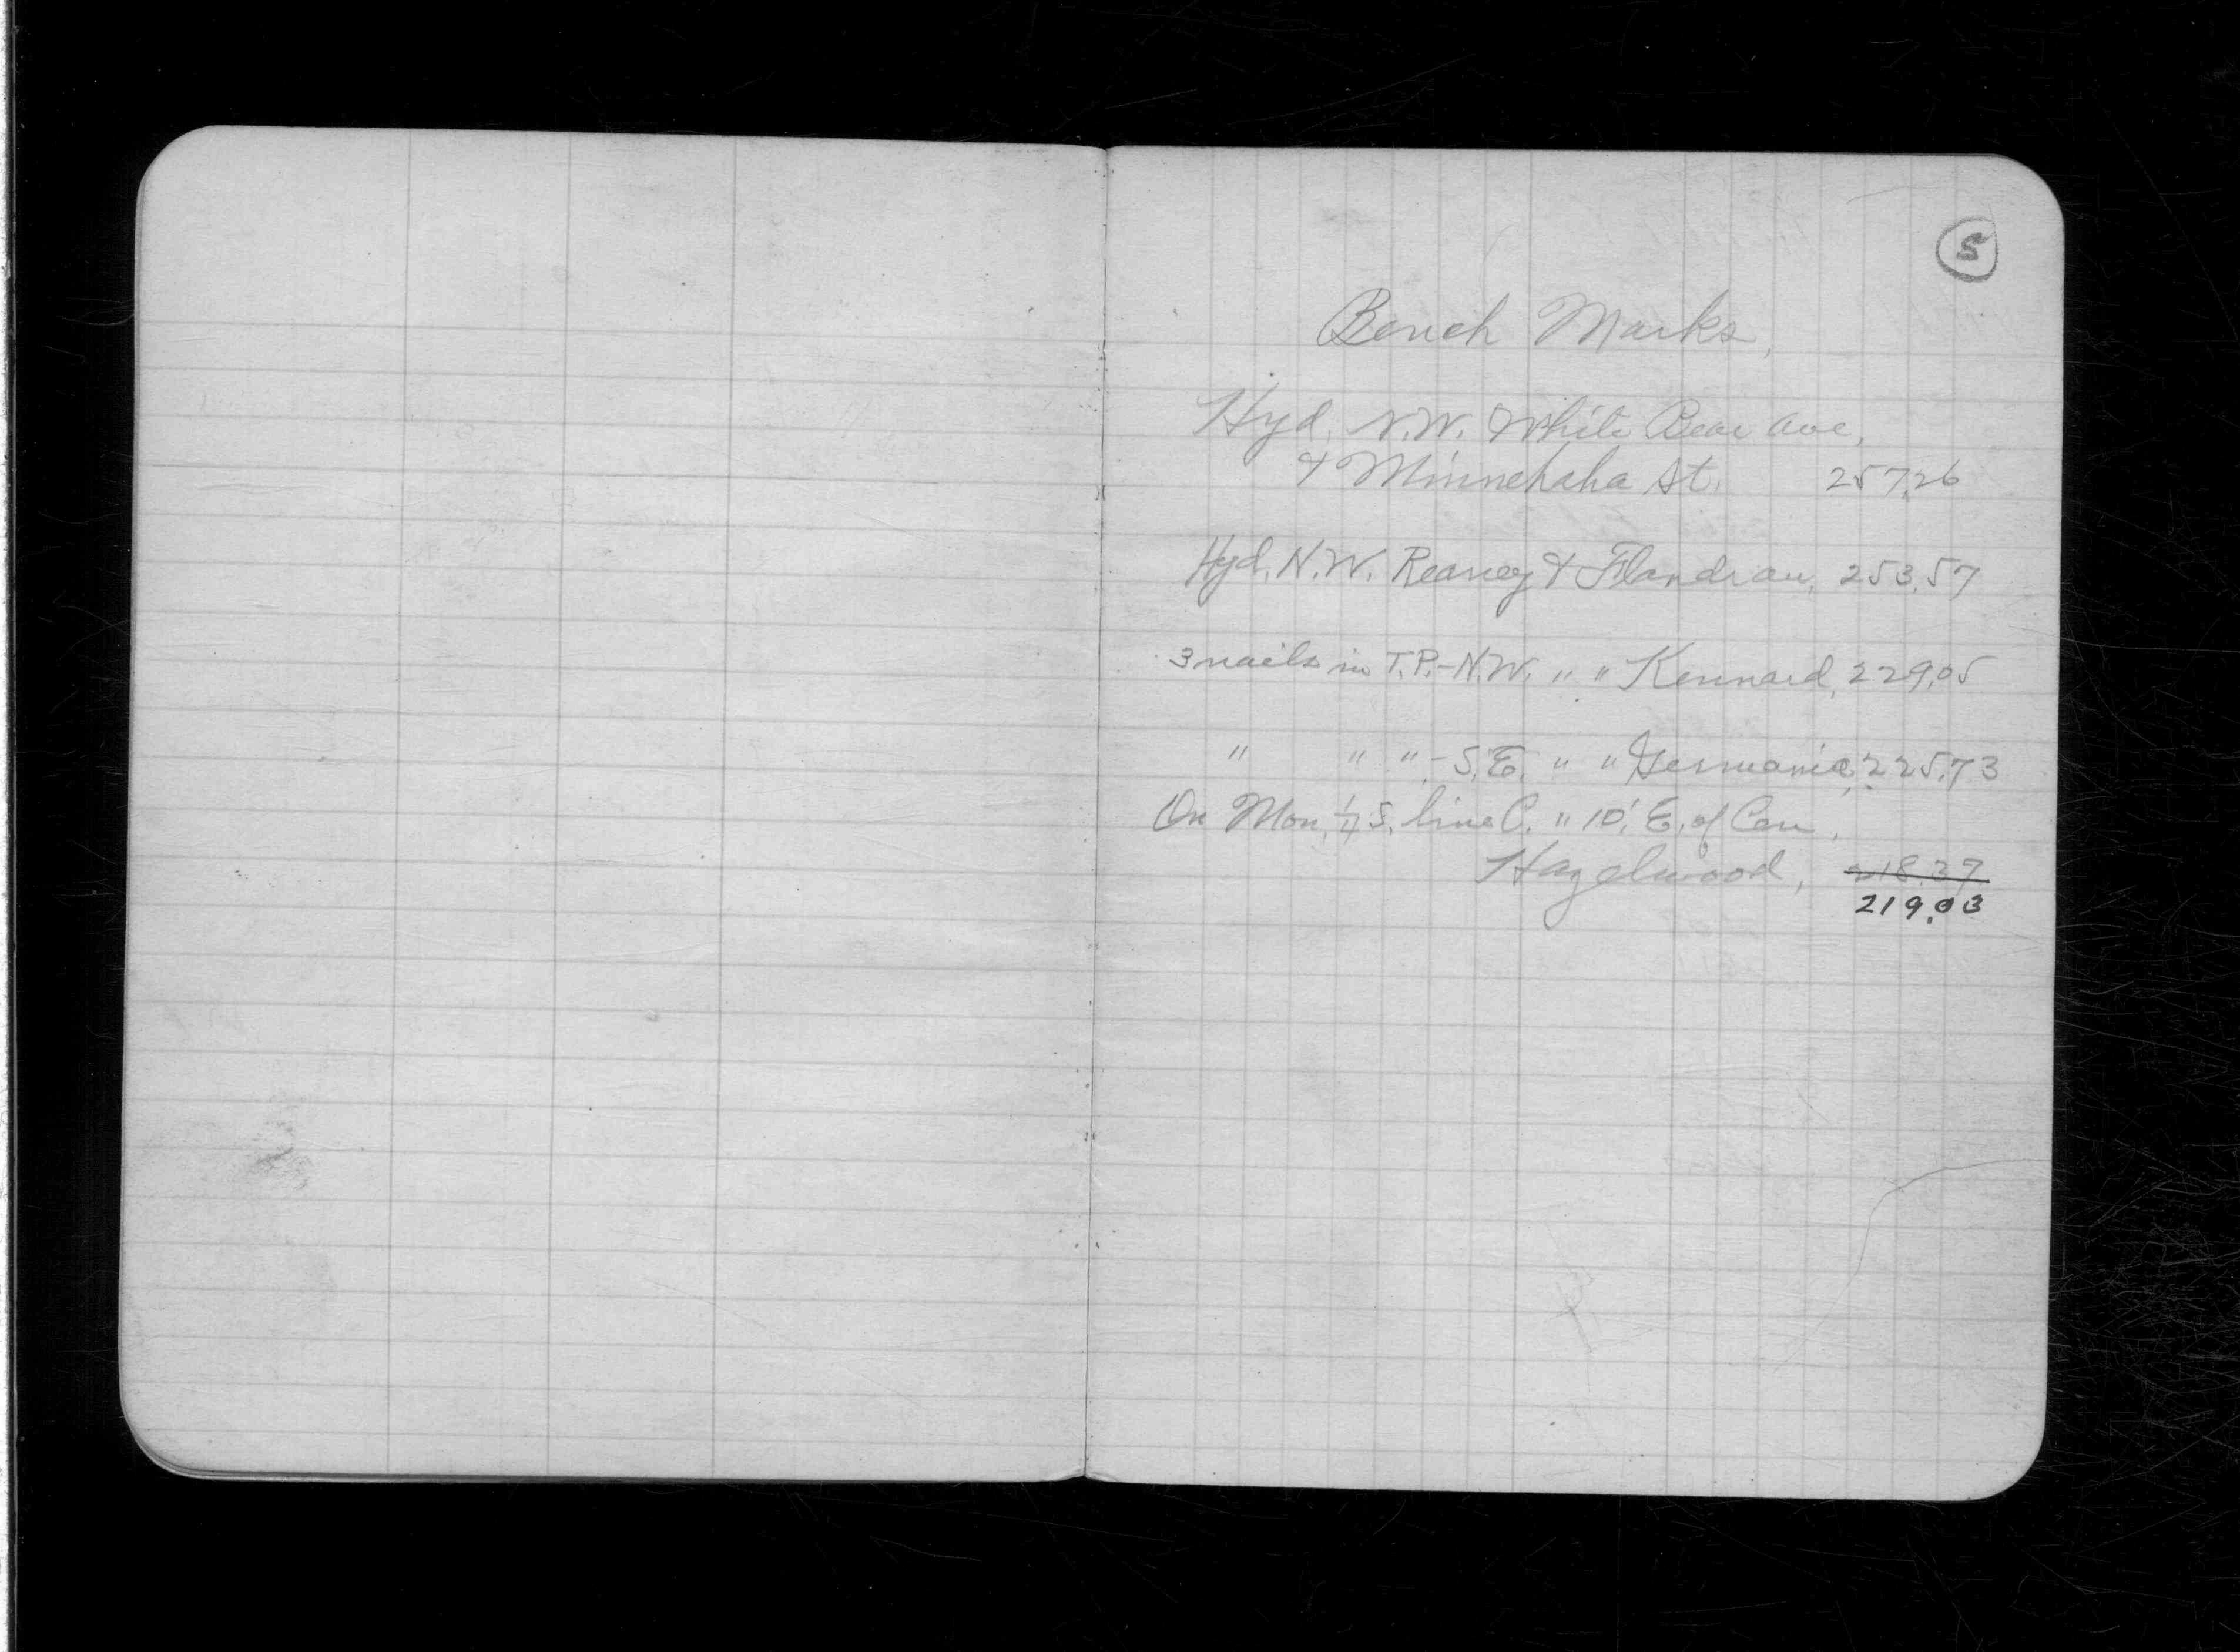 5
Bench Marks,
Hyd. N.W. White Bear Ave,
& Minnehaha St. 257.26
Hyd. N.W. Reaney & Flandrau, 253.57
3 nails in T.P.-N.W. " " Kennard, 229.05
" " " - S.E. " " Germania, 225.73
On Mon. 1/4 S. line C. " 10' E. of Cen.
Hazelwood, 218.37
219.03